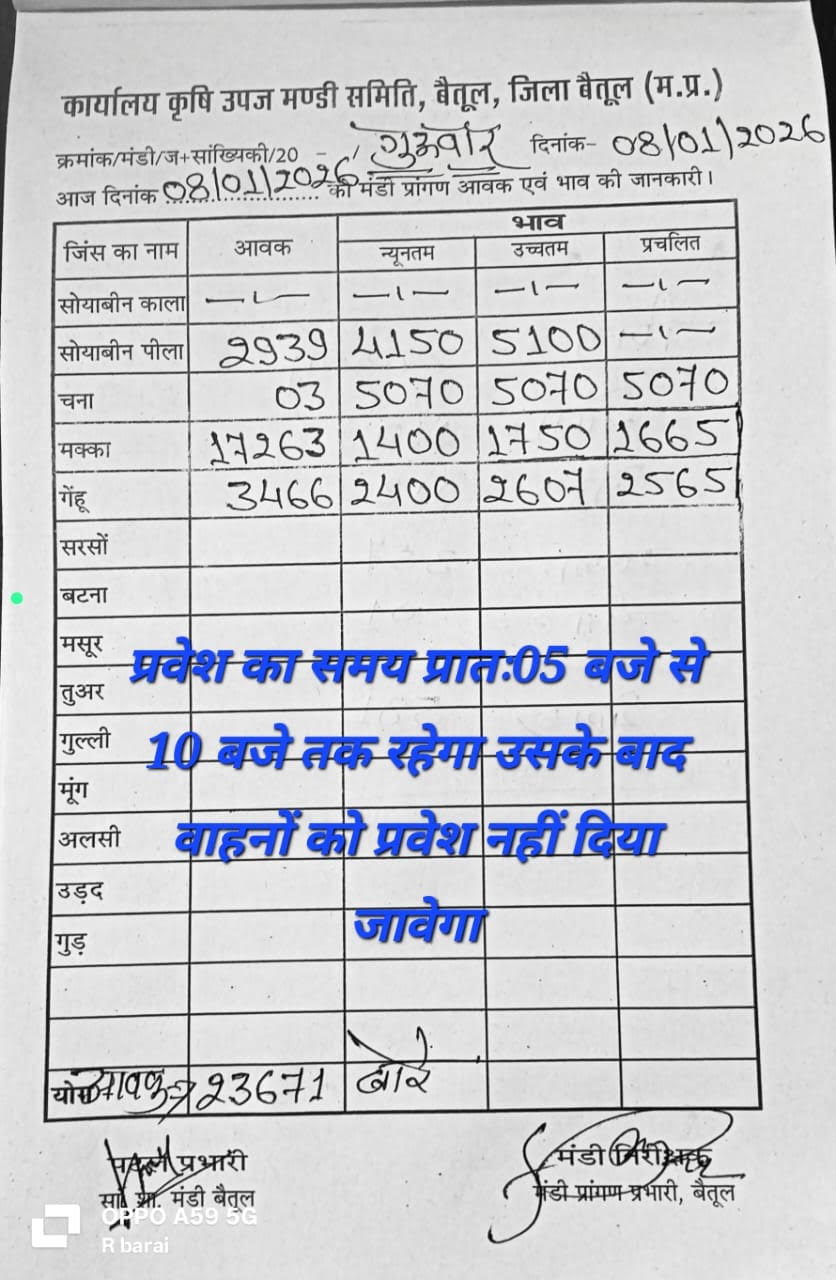 कार्यालय कृषि उपज मण्डी समिति, बैतूल, जिला बैतूल (म.प्र.)
क्रमांक/मंडी/ज+सांख्यिकी/20 - / गुरूवार दिनांक- 08/01/2026
आज दिनांक 08/01/2026 को मंडी प्रांगण आवक एवं भाव की जानकारी।
जिंस का नाम आवक भाव
न्यूनतम उच्चतम प्रचलित
सोयाबीन काला —ı— —ı— —ı— —ı—
सोयाबीन पीला 2939 4150 5100 —ı—
चना 03 5070 5070 5070
मक्का 17263 1400 1750 1665
गेंहू 3466 2400 2607 2565
सरसों
बटना
मसूर
तुअर
गुल्ली
मूंग
अलसी
उड़द
गुड़
प्रवेश का समय प्रात:05 बजे से
10 बजे तक रहेगा उसके बाद
वाहनों को प्रवेश नहीं दिया
जावेगा
योग आवक→ 23671 बोरे
प्रभारी मंडी निरीक्षक
मंडी बैतूल मंडी प्रांगण प्रभारी, बैतूल
OPPO A59 5G
R barai